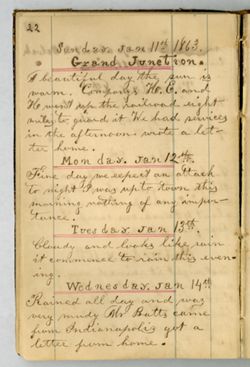 22
Sunday. Jan 11th 1863.
Grand Junction.
A beautiful day the sun is
warm. Company H. E. and
K went up the railroad eight
miles to guard it We had services
in the afternoon. wrote a let-
ter home.
Monday. Jan 12th.
Fine day we expect an attack
to night I was up to town this
morning nothing of any impor-
tance.
Tuesday. Jan 13th.
Cloudy and looks like rain
it commence to rain this even-
ing.
Wednesday. Jan 14th
Rained all day and was
very mudy Mr Butts came
from Indianapolis got a
letter from home.